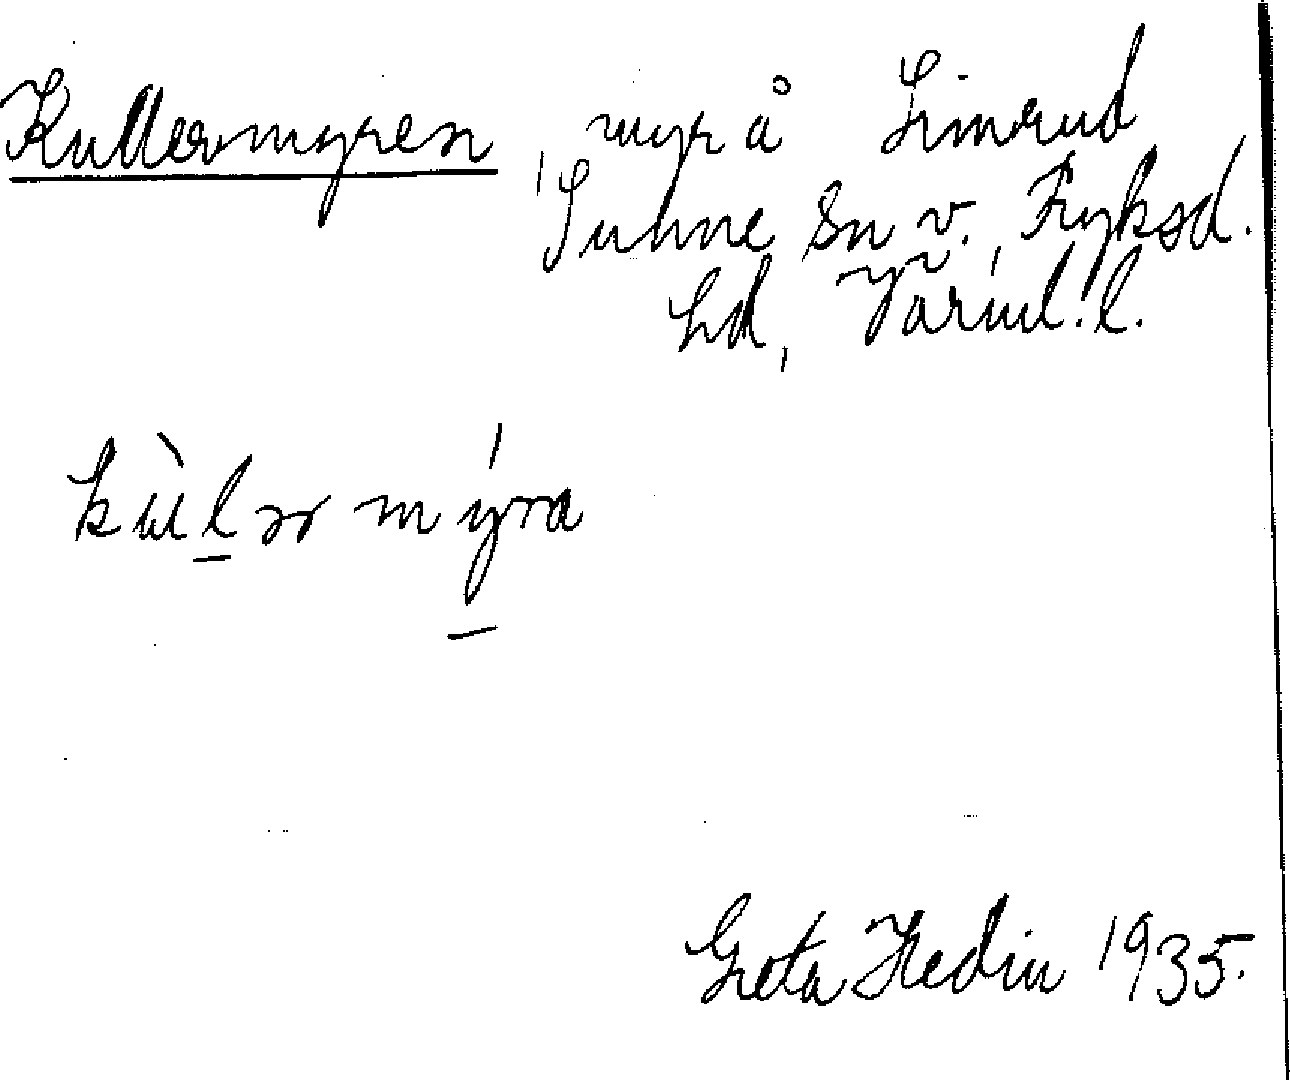 Kullermyren, myr å Limrud
Sunne Sn v. Fryksd.
hd, Värml. l.
kùl̲ər mýra
Greta Hedin 1935.